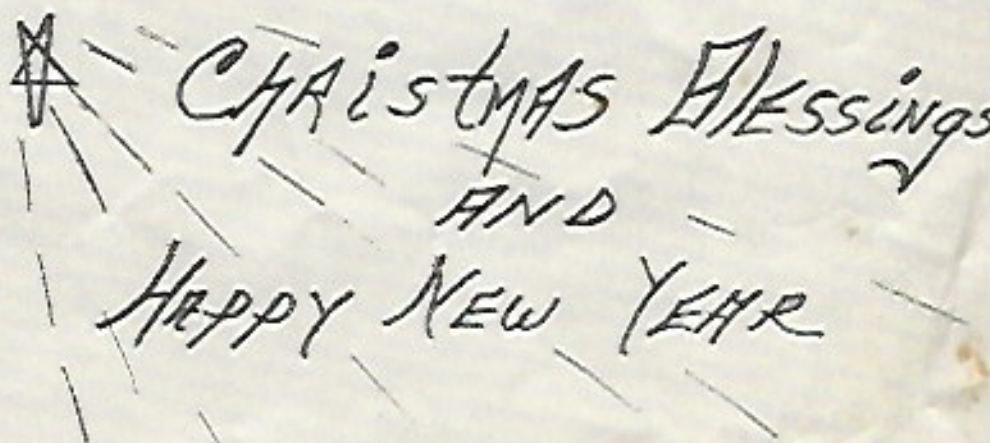 Christmas Blessings
AND
HAPPY NEW YEAR